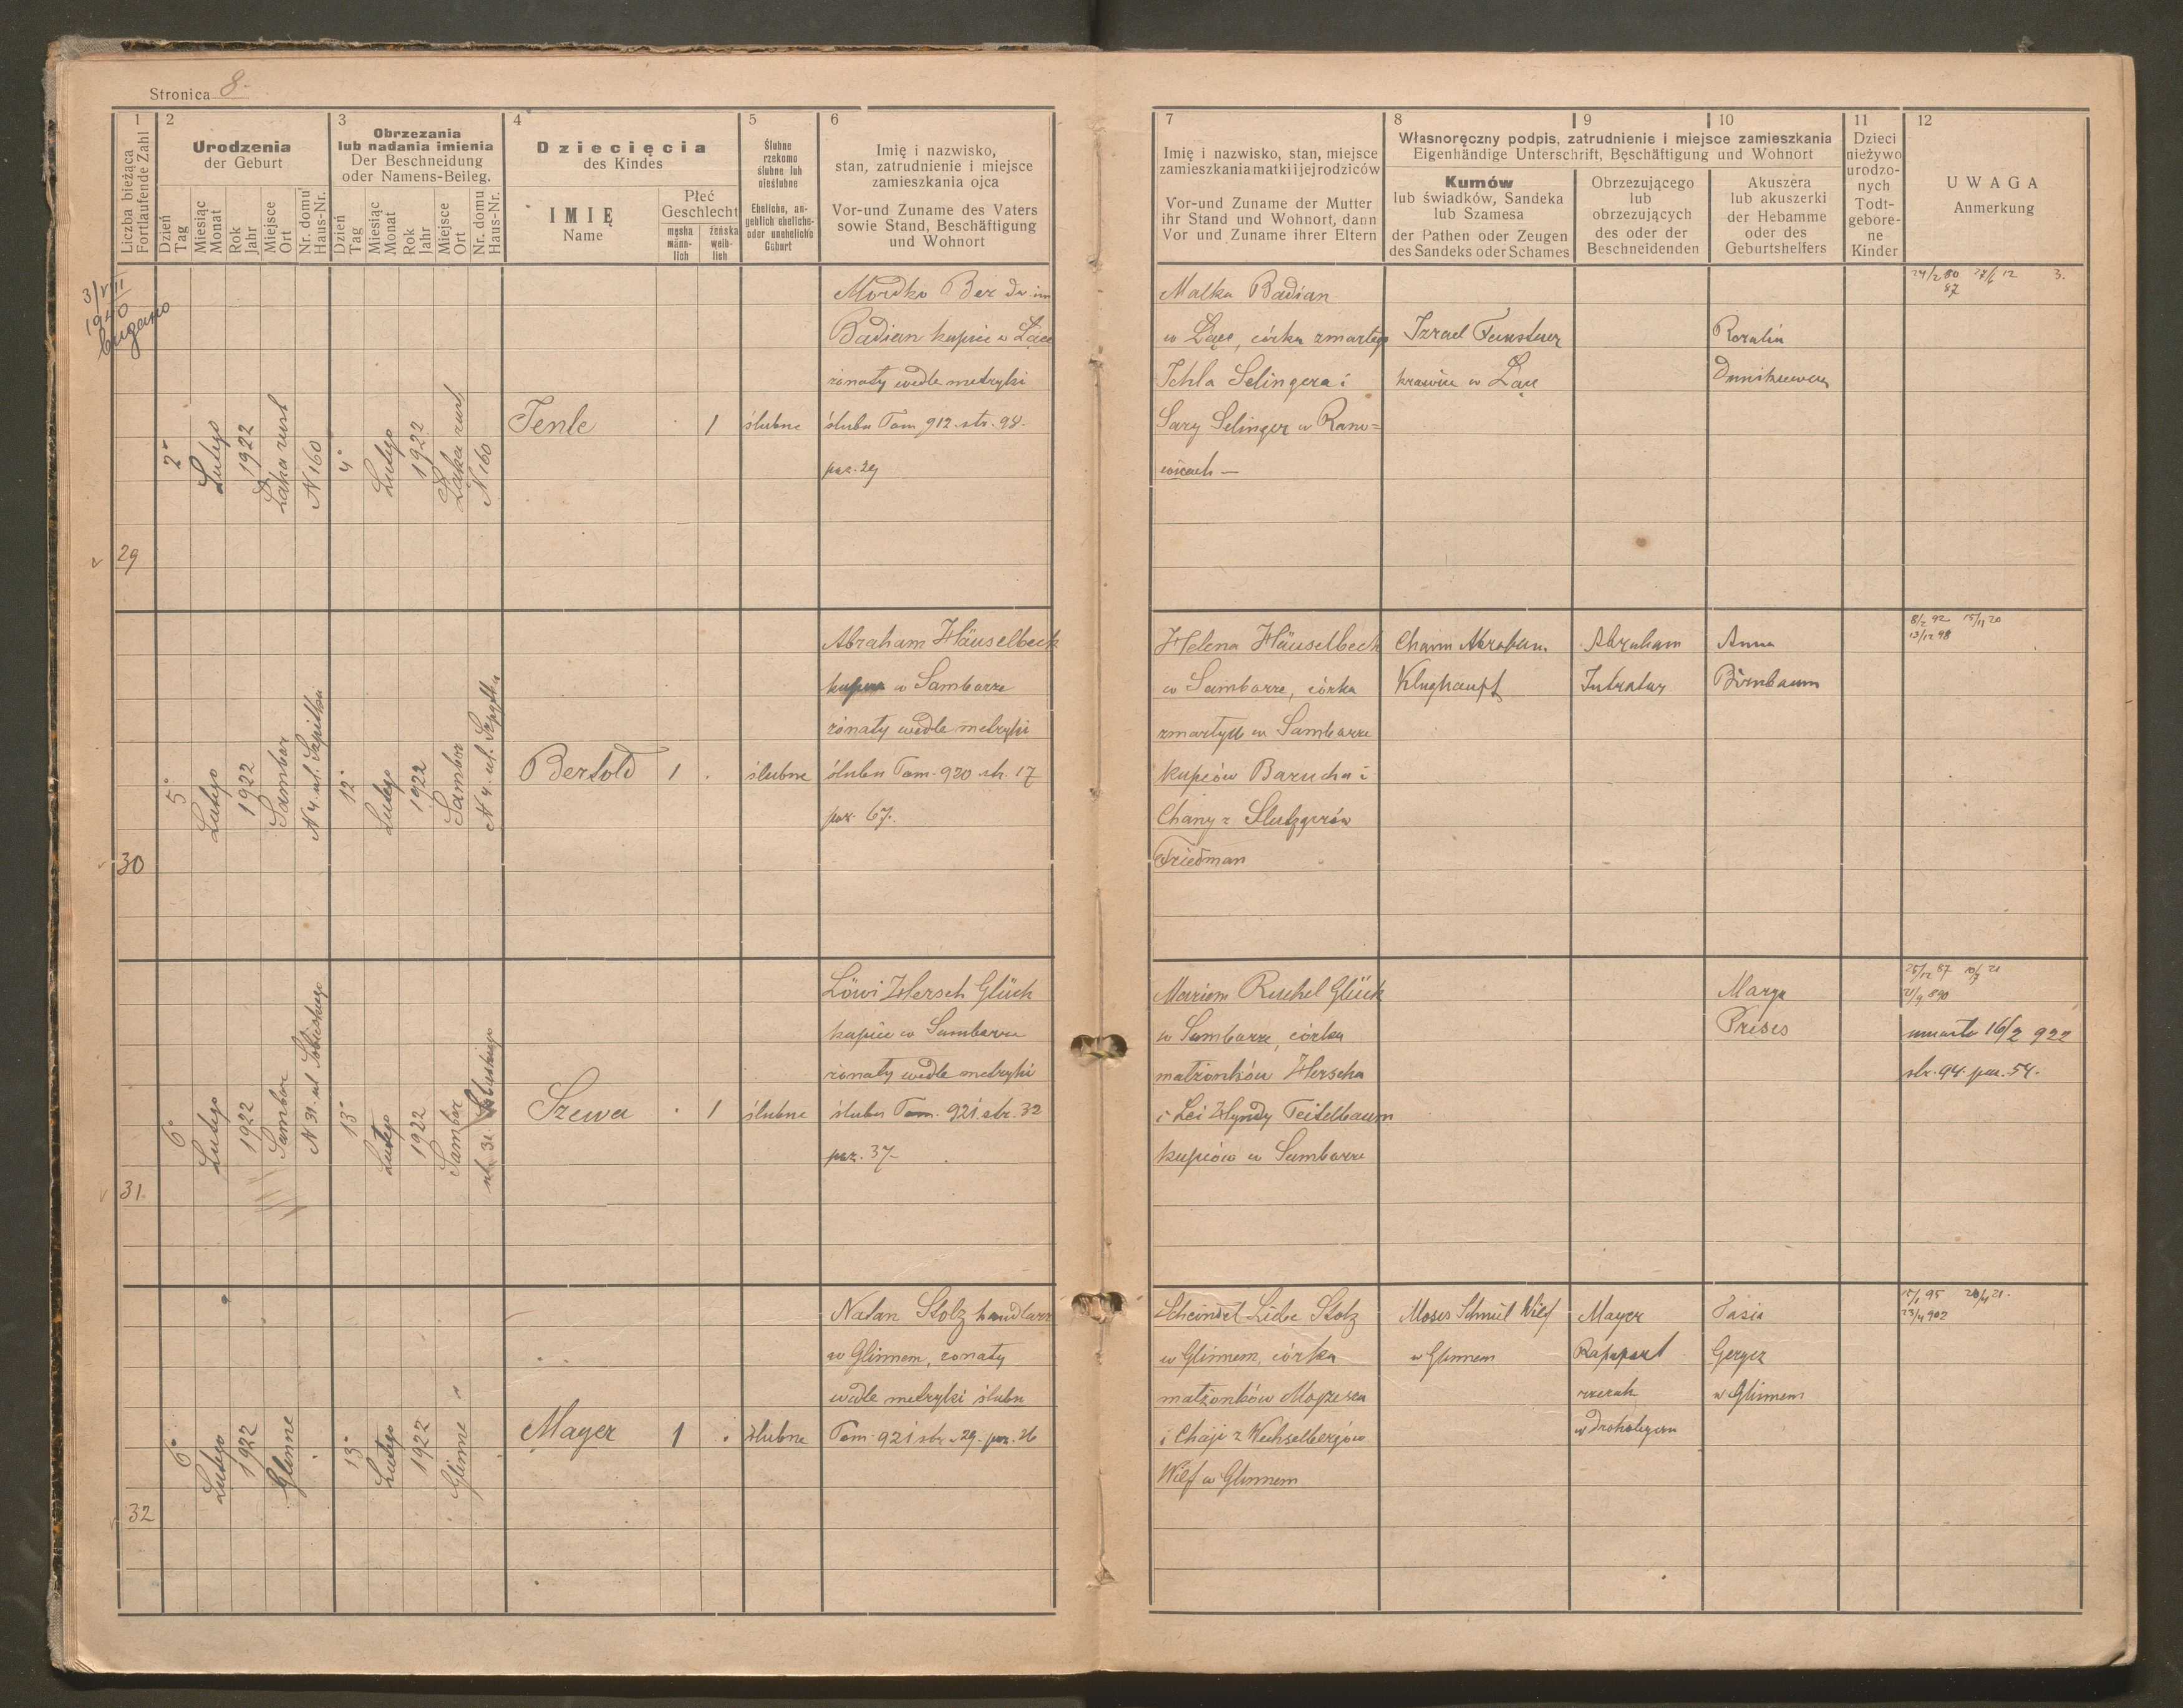 Stronica 8.
1
Liczba bieżąca
Fortlaufende Zahl
2
Urodzenia
der Geburt
Dzień
Tag
Miesiąc
Monat
Rok
Jahr
Miejsce
Ort
Nr. domu
Haus-Nr.
3
Obrzezania
lub nadania imienia
Der Beschneidung
oder Namens-Beileg.
Dzień
Tag
Miesiąc
Monat
Rok
Jahr
Miejsce
Ort
Nr. domu
Haus-Nr.
4
Dziecięcia
des Kindes
IMIĘ
Name
Płeć
Geschlecht
męska
männ-
lich
żeńska
weib-
lich
5
Ślubne
rzekomo
ślubne lub
nieślubne
Eheliche, an-
geblich eheliche-
oder uneheliche
Geburt
6
Imię i nazwisko,
stan, zatrudnienie i miejsce
zamieszkania ojca
Vor-und Zuname des Vaters
sowie Stand, Beschäftigung
und Wohnort
7
Imię i nazwisko, stan, miejsce
zamieszkania matki i jej rodziców
Vor-und Zuname der Mutter
ihr Stand und Wohnort, dann
Vor und Zuname ihrer Eltern
8
9
10
Własnoręczny podpis, zatrudnienie i miejsce zamieszkania
Eigenhändige Unterschrift, Beschäftigung und Wohnort
Kumów
lub świadków, Sandeka
lub Szamesa
der Pathen oder Zeugen
des Sandeks oder Schames
Obrzezującego
lub
obrzezujących
des oder der
Beschneidenden
Akuszera
lub akuszerki
der Hebamme
oder des
Geburtshelfers
11
Dzieci
nieżywo
urodzo-
nych
Todt-
gebore-
ne
Kinder
12
UWAGA
Anmerkung
3/VIII
1940
29
2
Lutego
1922
Łąka rust
N 160
4
Lutego
1922
Łąka rust
N 160
Tenle
1
ślubne
Mordko Ber dw. im
Badian kupiec w Łące
żonaty wedle metryki
ślubu Tom 912 str. 98.
poz. 29
Malka Badian
w Łące, córka zmarłego
Ichla Selingera i
Sary Selinger w
Izrael
krawiec w Łące
Rozalia
3.
30
5
Lutego
1922
Sambor
N 4 ul. Szpitalna
12
Lutego
1922
Sambor
N 4 ul.
Bertold
1
.
ślubne
Abraham Häuselbeck
kupiec w Samborze
żonaty wedle metryki
ślubu Tom. 920 str. 17
poz. 67.
Helena Häuselbeck
w Samborze, córka
zmarłych w Samborze
kupców Barucha i
Chany z
Friedman
Chaim Abraham
Klughaupt
Abraham
Intrator
Anna
Birnbaum
8/2 92 15/11 20
13/12 98
31
6
Lutego
1922
Sambor
N 31 ul Sobieskiego
13
Lutego
1922
Sambor
ul. 31. Sobieskiego
Szewa
.
1
ślubne
Löwi Hersch Glück
kupiec w Samborze
żonaty wedle metryki
ślubu Tom. 921 str. 32
poz. 37
Mariem Ruchel Glück
w Samborze, córka
małżonków Herscha
i Lei Hyndy Teitelbaum
kupców w Samborze
Marya
Preises
zmarła 16/2 922
str. 94. poz. 54.
32
6
Lutego
1922
Glinne
13
Lutego
1922
Glinne
Mayer
1
.
ślubne
Natan Stolz handlarz
w Glinnem, żonaty
wedle metryki ślubu
Tom. 921 str. 29. poz. 26
Scheindel Liebe Stolz
w Glinnem, córka
małżonków Mojżesza
i Chaji z Wechselbergów
Wilf w Glinnem
Moses Schmil Wilf
w Glinnem
Mayer
Rapaport
rzezak
w Drohobyczu
Tasia
w Glinnem
23/4 902